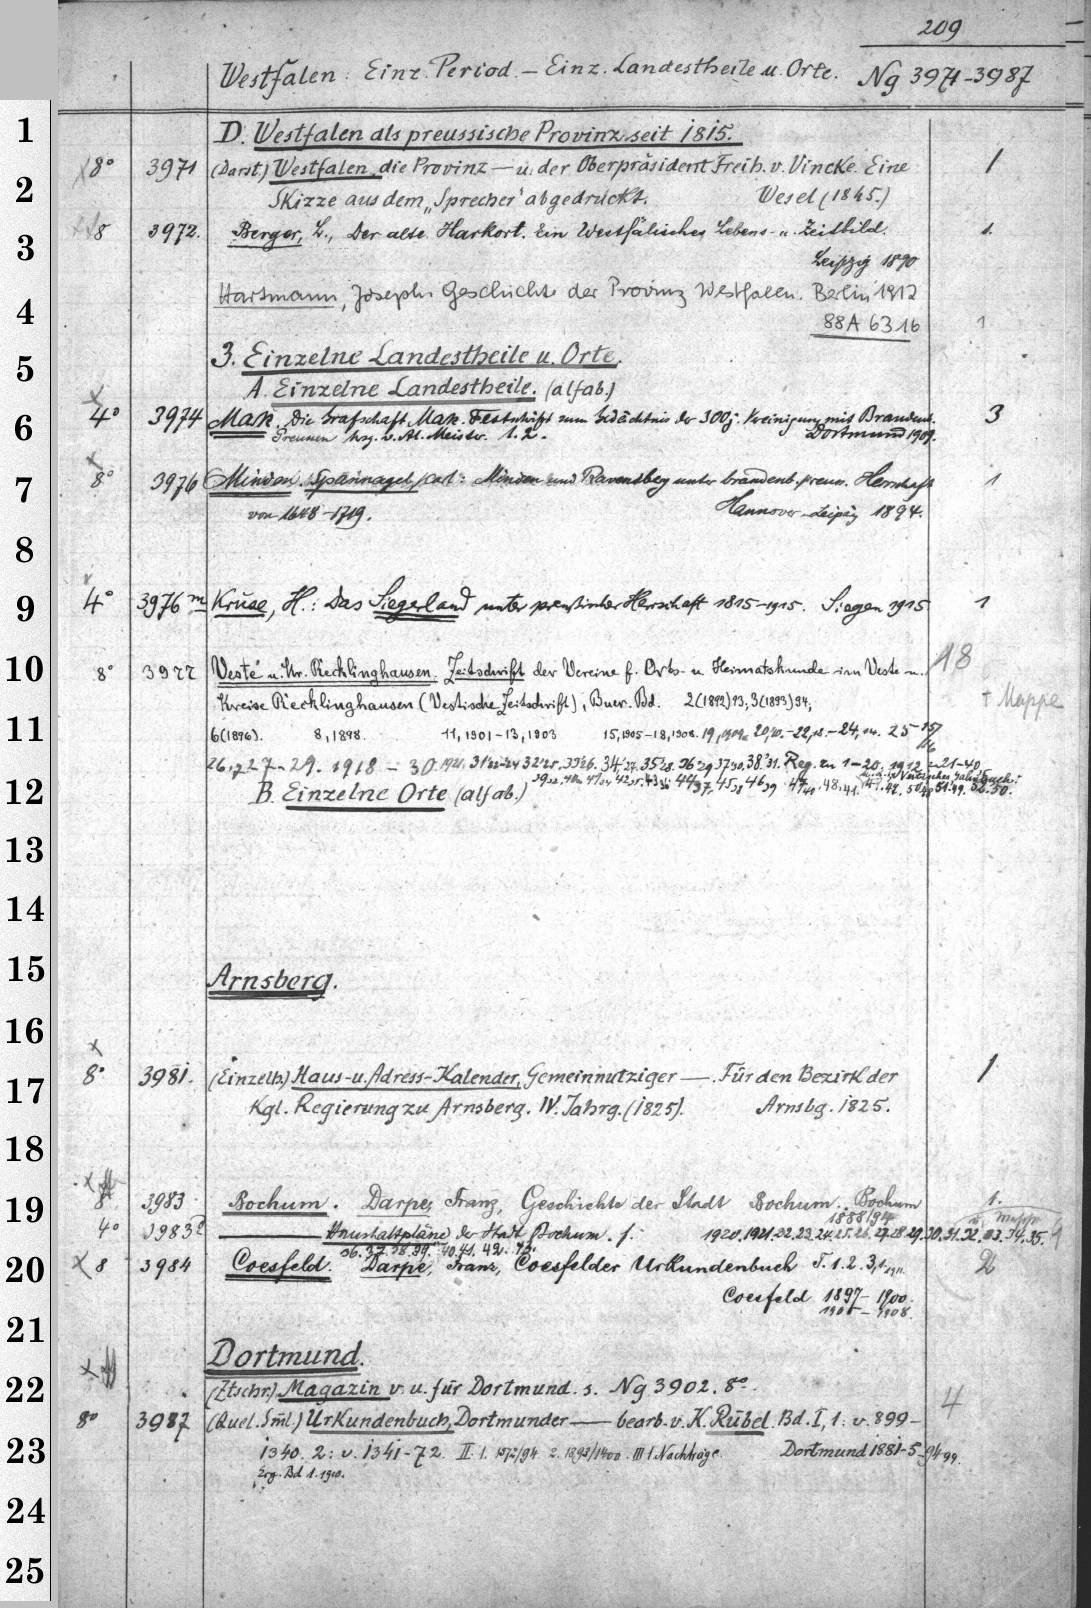 209
Westfalen: Einz. Period. – Einz. Landestheile u. Orte. Ng 3971–3987
1 D. Westfalen als preussische Provinz seit 1815.
8° 3971 (Darst.) Westfalen, die Provinz — u. der Oberpräsident Freih. v. Vincke. Eine 1
2 Skizze aus dem „Sprecher" abgedruckt. Wesel (1845.)
3 8 3972. Berger, L., Der alte Harkort. Ein Westfälisches Lebens- u. Zeitbild. 1.
Leipzig 1890
Hartmann, Joseph: Geschichte der Provinz Westfalen. Berlin 1912
4 88 A 6316 1
5 3. Einzelne Landestheile u. Orte.
A. Einzelne Landestheile. (alfab.)
6 4° 3974 Mark. Die Grafschaft Mark. Festschrift zum Gedächtnis der 300j. Vereinigung mit Brandenb. 3
Preussen hrsg. v. Al. Meister. 1. 2. Dortmund 1909.
7 8° 3976 Minden. Spannagel, Carl: Minden und Ravensberg unter brandenb. preuss. Herrschaft 1
von 1648–1719. Hannover-Leipzig 1894.
8
9 4° 3976 m Kruse, H.: Das Siegerland unter preussischer Herrschaft 1815–1915. Siegen 1915 1
10 8° 3977 Veste u. Kr. Recklinghausen. Zeitschrift der Vereine f. Orts- u. Heimatskunde im Veste u. 18
Kreise Recklinghausen (Vestische Zeitschrift), Buer. Bd. 2 (1892) 93, 3 (1893) 94, + Mappe
11 6 (1896). 8, 1898. 11, 1901–13, 1903 15, 1905–18, 1908. 19, 1909. 20, 10.–22, 12.–24, 14. 25
26, 27–29. 1918 – 30 1921. Reg. zu 1–20, 1912 u. 21–40
12 B. Einzelne Orte (alfab.)
13
14
15 Arnsberg.
16
17 8° 3981. (Einzelh.) Haus- u. Adress-Kalender, Gemeinnütziger —. Für den Bezirk der 1
Kgl. Regierung zu Arnsberg. IV. Jahrg. (1825). Arnsbg. 1825.
18
19 8. 3983 Bochum. Darpe, Franz, Geschichte der Stadt Bochum. Bochum 1.
1888/94
4° 3983 a Haushaltpläne der Stadt Bochum. f. 1920. 1921. 22. 23. 24. 25. 26. 27. 28. 29. 30. 31. 32. 33. 34. 35.
36. 37. 38. 39. 40. 41. 42. 43.
20 8 3984 Coesfeld. Darpe, Franz, Coesfelder Urkundenbuch T. 1. 2. 3, 1. 1911. 2
Coesfeld 1897–1900.
1905–1908.
21
Dortmund.
22 (Ztschr.) Magazin v. u. für Dortmund. s. Ng 3902. 8°.
8° 3987 (Quel. Sml.) Urkundenbuch, Dortmunder — bearb. v. K. Rübel. Bd. I, 1: v. 899– 4
23 1340. 2: v. 1341–72. II. 1. 1372/94 2. 1392/1400. III 1 Nachträge Dortmund 1881–5–94 99.
Erg. Bd 1. 1910.
24
25